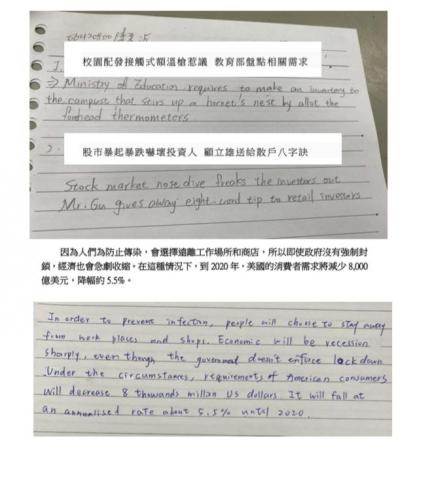 校園配發接觸式額溫槍惹議 教育部盤點相關需求
1.
⇒ Ministry of Education requires to make an inventory to
the campust that stirs up a hornet's nest by allot the
forehead thermometers
2.
股市暴起暴跌嚇壞投資人 顧立雄送給散戶八字訣
Stock market nose dive freaks the investors out
Mr. Gu gives away eight-word tip to retail investors
因為人們為防止傳染，會選擇遠離工作場所和商店，所以即使政府沒有強制封
鎖，經濟也會急劇收縮。在這種情況下，到 2020 年，美國的消費者需求將減少 8,000
億美元，降幅約 5.5%。
In order to prevent infection, people will choose to stay away
from work places and shops. Economic will be recession
sharply, even though the government doesn't enforce lockdown
.Under the circumstances, requirements of American consumers
will decrease 8 thowands million US dollars. It will fall at
an annualised rate about 5.5% until 2020.